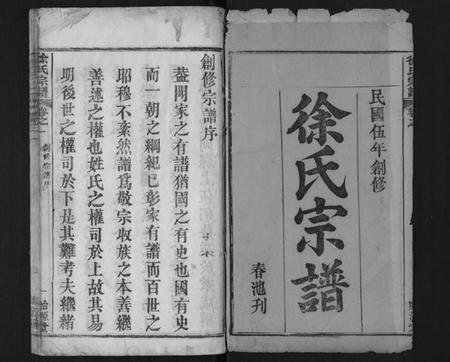 民國伍年創修
徐氏宗譜
春池刊
創修宗譜序
蓋聞家之有譜猶國之有史也國有史
而一朝之綱紀已彰家有譜而百世之
昭穆不紊然譜爲敬宗收族之本善繼
善述之權也姓氏之權司於上故其易
明後世之權司於下是其難考夫繼緒
徐氏宗譜
卷之一
創修宗譜序
一
徐氏宗譜